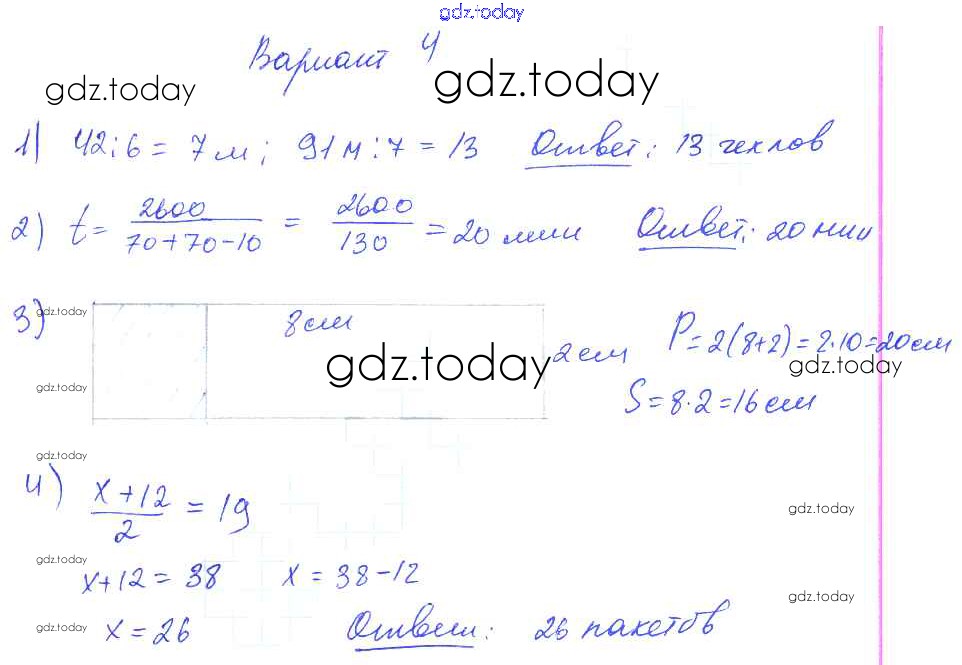 gdz.today
Вариант 4
gdz.today gdz.today
1) 42:6 = 7 м; 91 м:7 = 13 Ответ: 13 чехлов
2) t = 2600/(70+70-10) = 2600/130 = 20 мин Ответ: 20 мин
3) gdz.today
8 см
gdz.today
2 см
P = 2(8+2) = 2·10 = 20 см
gdz.today
gdz.today
S = 8·2 = 16 см
gdz.today
4) (x+12)/2 = 19
gdz.today
gdz.today
x+12 = 38 x = 38-12
gdz.today
gdz.today
x = 26 Ответ: 26 пакетов